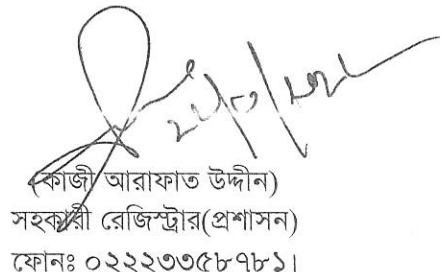 (কাজী আরাফাত উদ্দীন)
সহকারী রেজিস্ট্রার(প্রশাসন)
ফোনঃ ০২২২৩৩৫৮৭৮১।